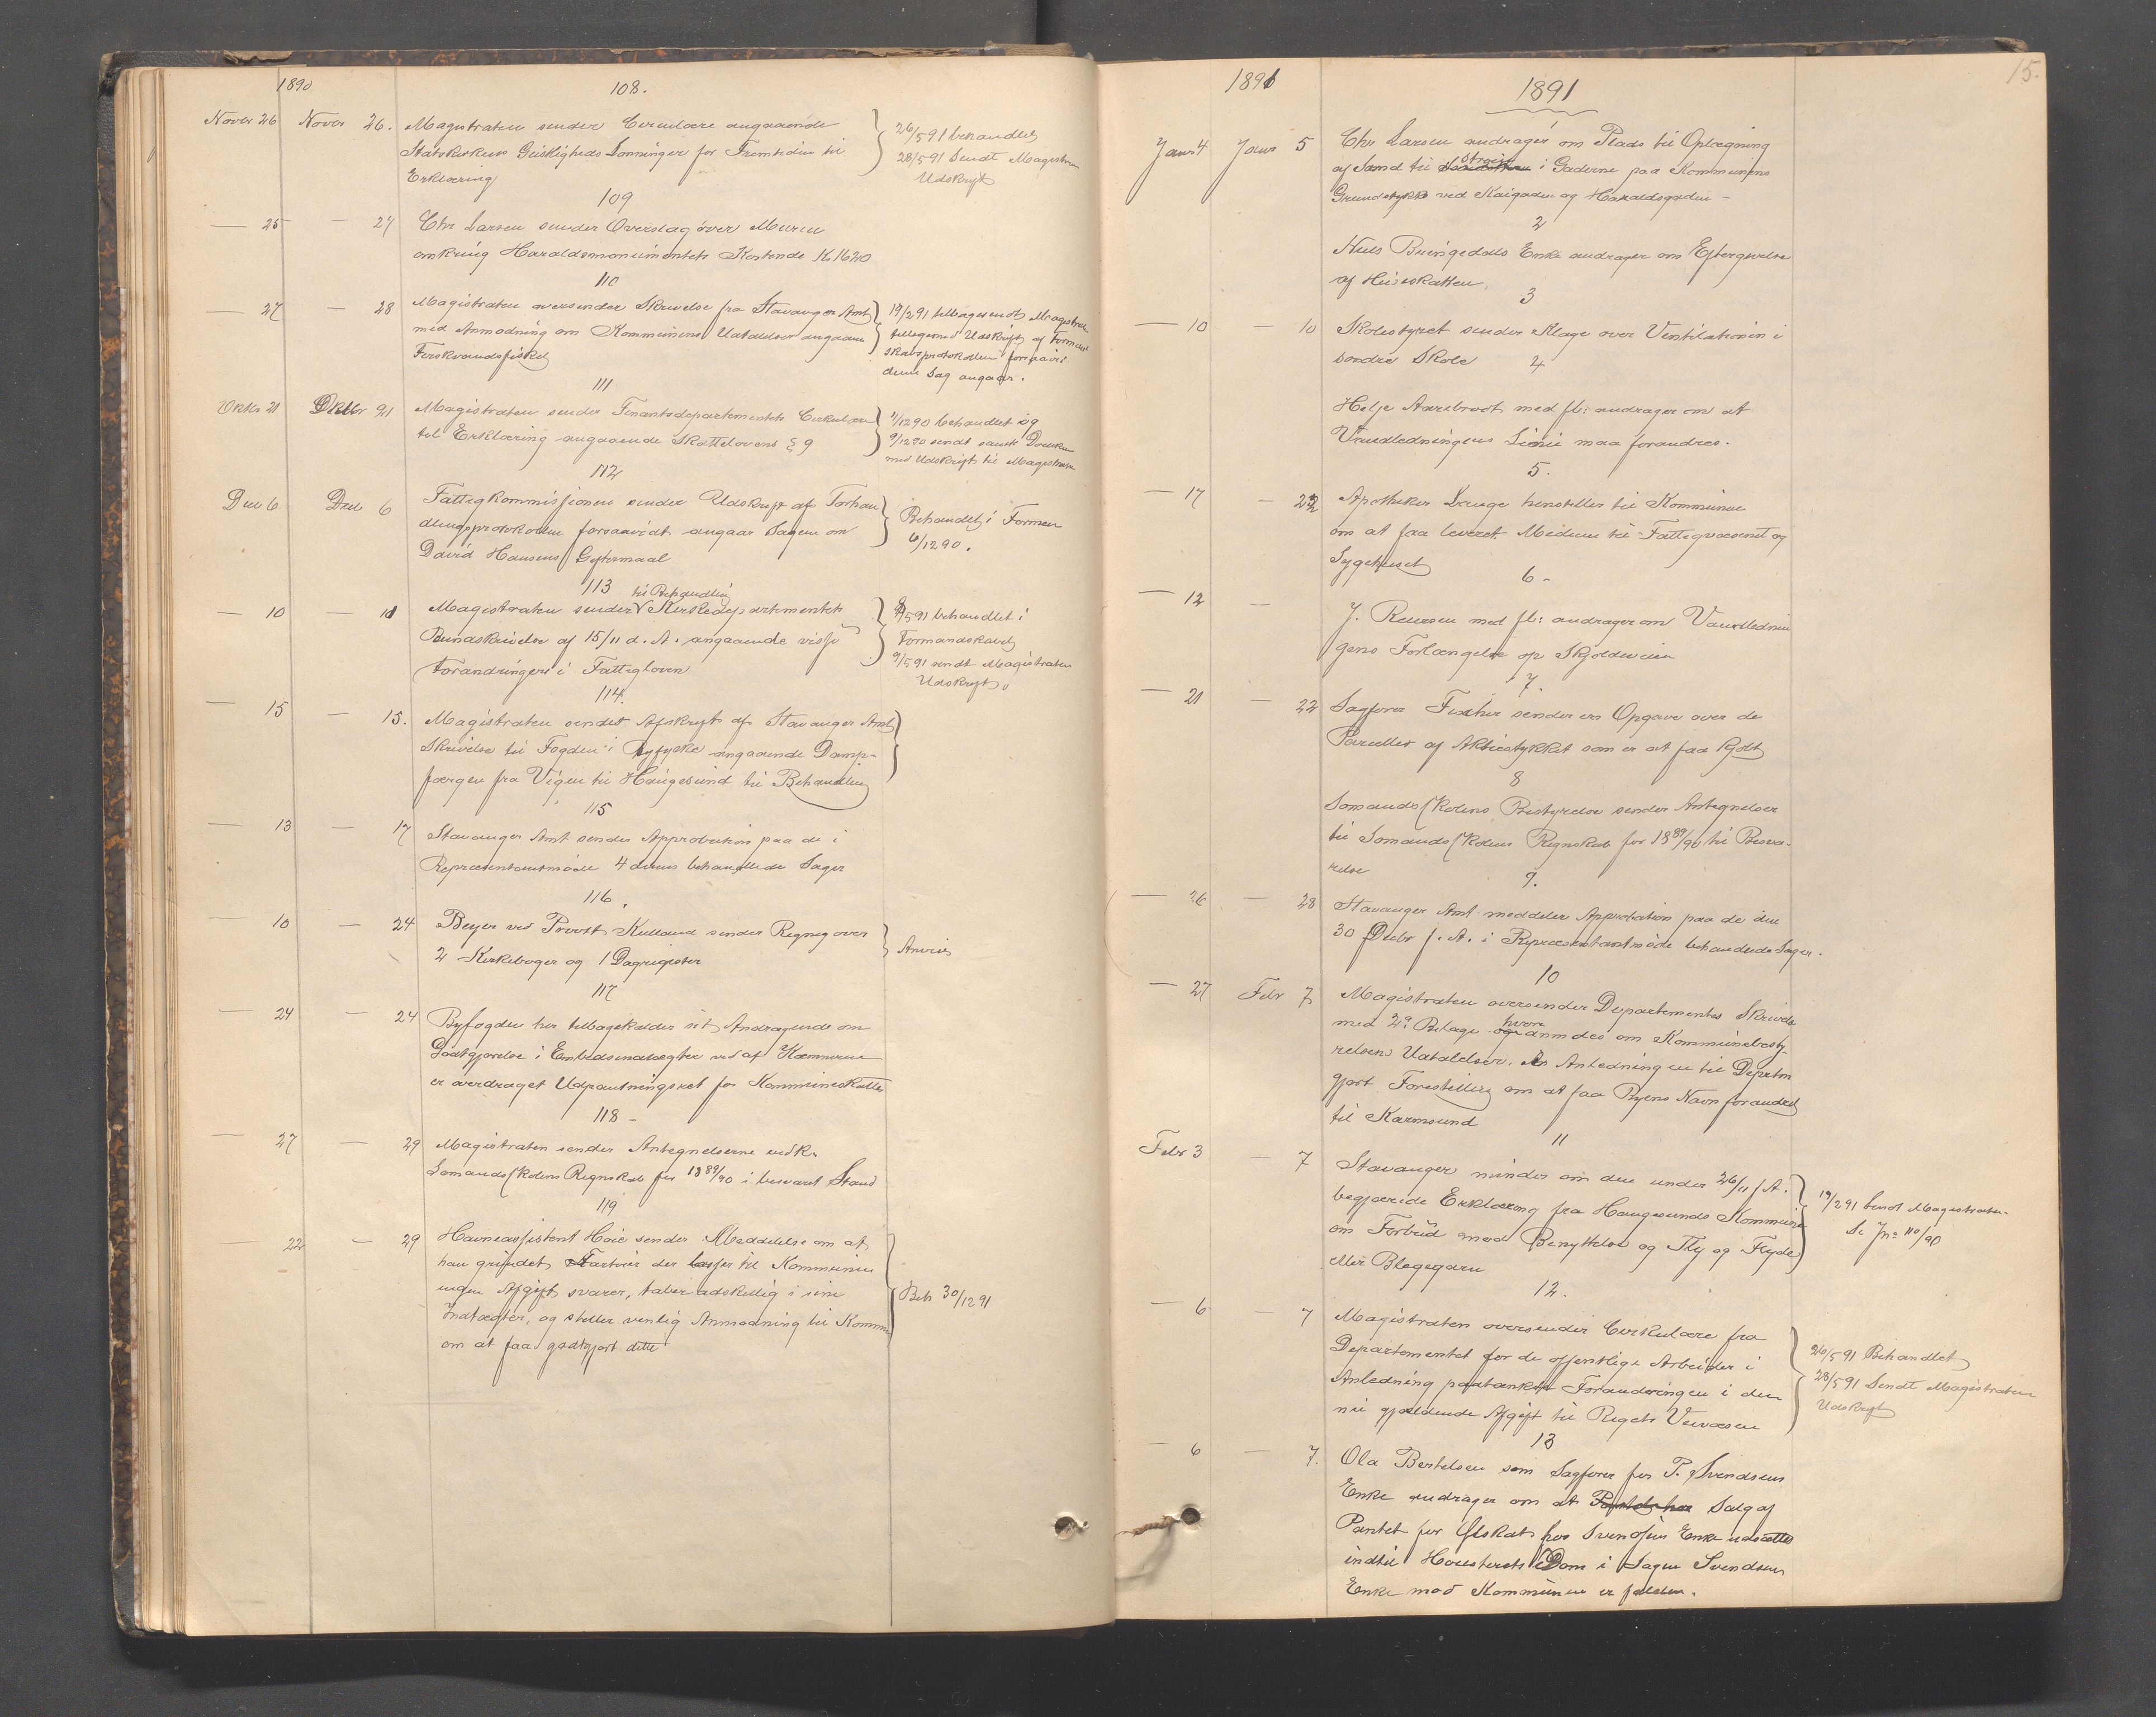 1890
108.
Novbr 26 Novbr 26. Magistraten sender Circulære angaaende
Statskirkens Geistligheds Lønninger for Fremtiden til
Erklæring
26/5 91 behandlet
28/5 91 Sendt Magistraten
Udskrift
109
— 25 — 27 Chr Larsen sender Overslag over Muren
omkring Haraldsmonumentets Kostende K 1620
110
— 27 — 28 Magistraten oversender Skrivelse fra Stavanger Amt
med Anmodning om Kommunens Udtalelser angaaende
Ferskvandsfisket
19/2 91 tilbagesendt Magistraten
tilligemed Udskrift af Formand
skabsprotokollen forsaavidt
denne Sag angaar.
111
Oktbr 21 Oktbr 21 Magistraten sender Finantsdepartementets Cirkulære
til Erklæring angaaende Skattelovens § 9
1/12 90 behandlet og
9/12 90 sendt samt
med Udskrift til Magistraten
112
Decb 6 Decb 6 Fattigkommissionen sender Udskrift af Forhan
dlingsprotokollen forsaavidt angaar Sagen om
David Hansens Giftermaal
Behandlet i Forman
6/12 90.
113
til Behandling
— 10 — 11 Magistraten sender Kirkedepartementets
Rundskrivelse af 15/11 d. A. angaaende visse
Forandringer i Fattigloven
9/5 91 behandlet i
Formandskabet
9/5 91 sendt Magistraten
Udskrift
114.
— 15 — 15. Magistraten sender Afskrift af Stavanger Amts
Skrivelse til Fogden i Ryfylke angaaende Damp-
færgen fra Vigen til Haugesund til Behandling
115
— 13 — 17 Stavanger Amt sender Approbation paa de i
Repræsentantmøde 4 dennes behandlede Sager
116.
— 10 — 24 Beyer ved Provst Kulland sender Regning over
2 Kirkebøger og 1 Dagregister
Anvist
117
— 24 — 24 Byfogden her tilbagekalder sit Andragende om
Godtgjørelse i Embedsindtægter ved at Kæmneren
er overdraget Udpantningsret for Kommuneskatter
118 -
— 27 — 29 Magistraten sender Antegnelserne vedk.
Sømandsskolens Regnskab for 1889/90 i besvaret Stand
119
— 22 — 29 Havneassistent Høie sender Meddelelse om at
han grundet Fartøier der losser til Kommunen
ingen Afgift svarer, taber adskillig i sine
Indtægter, og stiller venlig Anmodning til Kommu
om at faa godtgjort dette
Beh 30/12 91
15.
1891
1891
Janr 4 Janr 5 Chr Larsen andrager om Plads til Oplægning
af Sand til Strøing i Gaderne paa Kommunens
Grundstykke ved Kaigaden og Haraldsgaden -
2
Niels Bringedals Enke andrager om Eftergivelse
af Huseskatten
3
— 10 — 10 Skolestyret sender Klage over Ventilationen i
søndre Skole
4
Helje Aarebrodt med fl: andrager om at
Vandledningens Linie maa forandres.
5.
— 17 — 22 Apotheker Lange henstiller til Kommunen
om at faa leveret Medicin til Fattigvæsenet og
Sygehuset
6 -
— 12 — J. Reiersen med fl: andrager om Vandlednin
gens Forlængelse op Skjoldaveien
7.
— 21 — 22 Sagfører Fischer sender en Opgave over de
Parceller af Aktiestykket som er at faa kjøbt
8
Sømandsskolens Bestyrelse sender Antegnelser
til Sømandsskolens Regnskab for 1889/90 til Besva-
relse
9.
— 26 — 28 Stavanger Amt meddeler Approbation paa de den
30 Decbr f. A. i Repræsentantmøde behandlede Sager.
10
— 27 Febr 7 Magistraten oversender Departementets Skrivelse
med 2 Bilage hvori anmodes om Kommunebesty-
relsens Udtalelser, i Anledningen til Deprtm
gjort Forestilling om at faa Byens Navn forandret
til Karmsund
11
Febr 3 — 7 Stavanger minder om den under 26/11 f. A.
begjærede Erklæring fra Haugesunds Kommune
om Forbud mod Benyttelse og Fly og Flyde
eller Blegegarn
19/2 91 Sendt Magistraten
Se Jn: 110/90
12.
— 6 — 7 Magistraten oversender Cirkulære fra
Departementet for de offentlige Arbeider i
Anledning paatænkt Forandringen i den
nu gjældende Afgift til Rigets Veivæsen
26/5 91 Behandlet
28/5 91 Sendt Magistraten
Udskrift
13
— 6 — 7. Ola Bertelsen som Sagfører for P. Svendsens
Enke andrager om at Salg af
Pantet for Skat hos Svendsens Enke udsættes
indtil Høiesterets Dom i Sagen Svendsens
Enke mod Kommunen er falden.